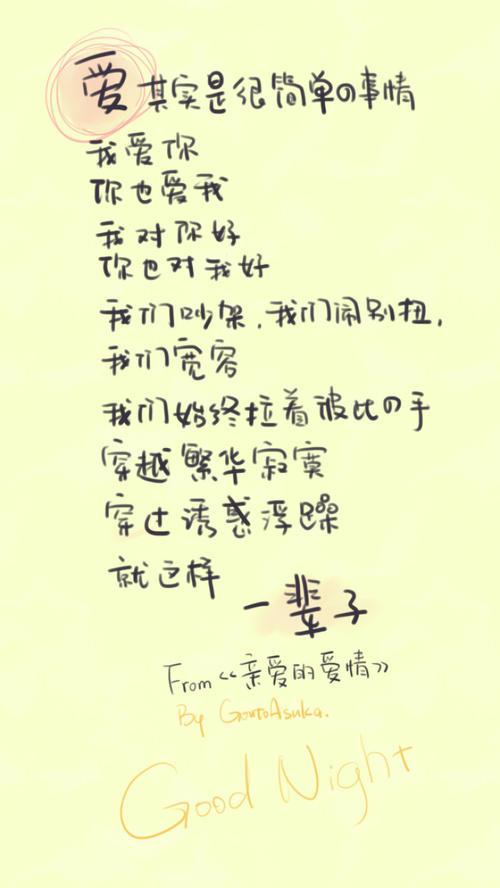 爱其实是很简单の事情
我爱你
你也爱我
我对你好
你也对我好
我们吵架,我们闹别扭,
我们宽容
我们始终拉着彼此の手
穿越繁华寂寞
穿过诱惑浮躁
就这样
一辈子
From《亲爱的爱情》
By GowtoAsuka.
Good Night